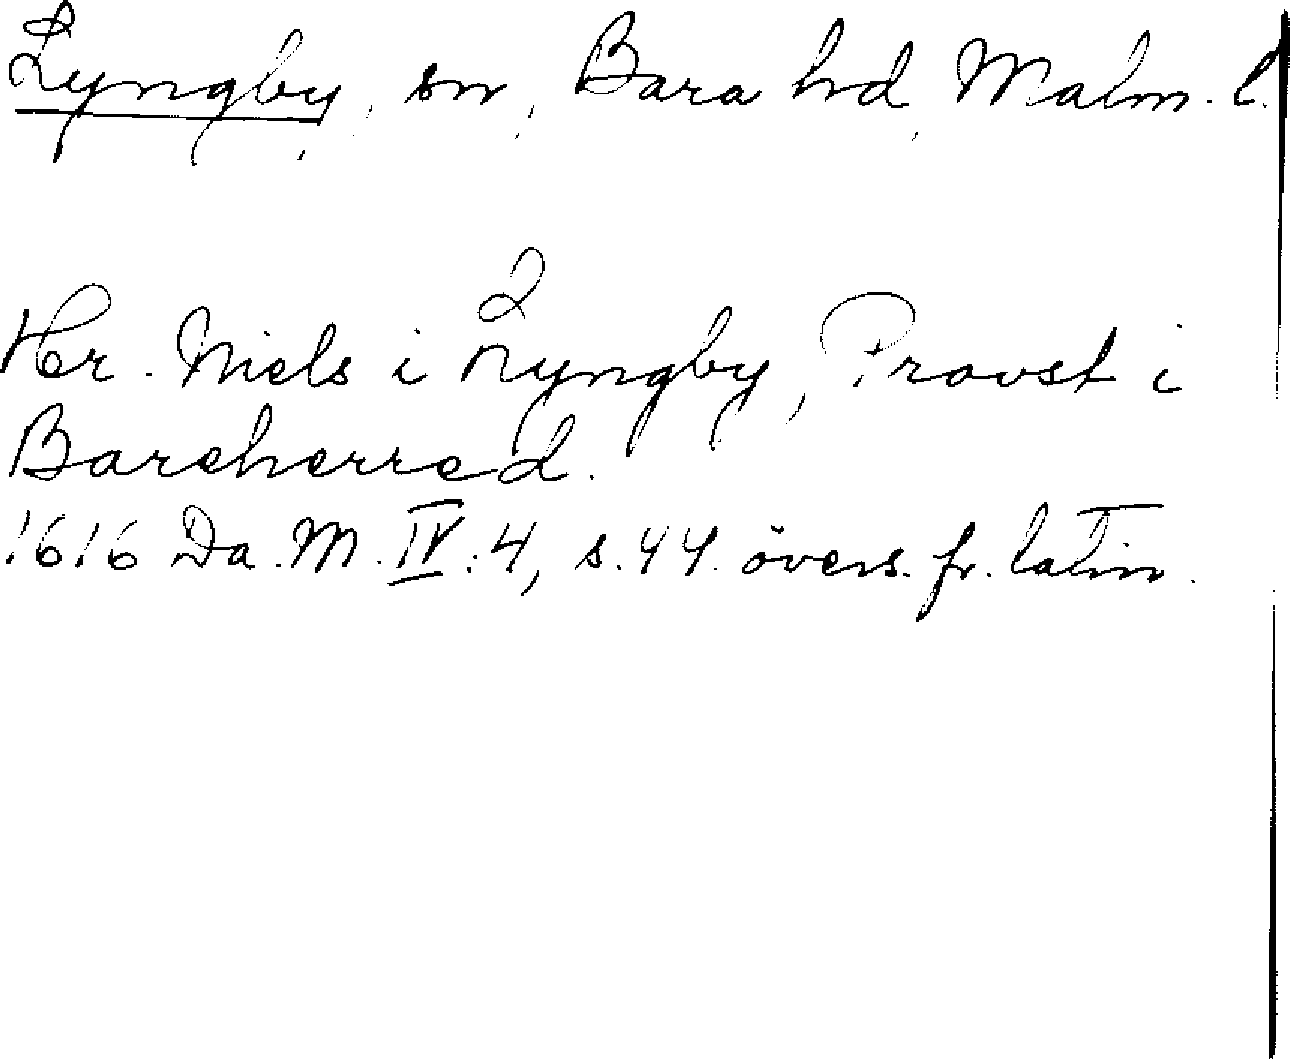 Lyngby, sn, Bara hd, Malm. l.
Hr. Niels i Lyngby, Provst i
Bareherred.
1616 Da. M. IV:4, s. 44. övers. fr. latin.